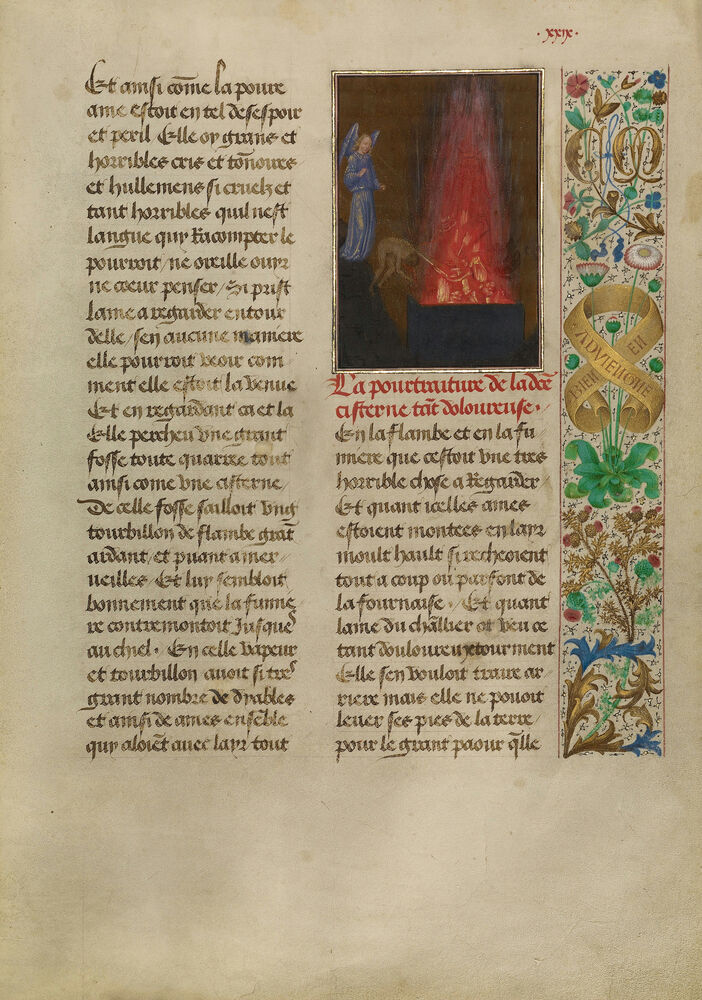 ·xxix·
Et ainsi cōme la poure
ame estoit en tel desespoir
et peril Elle oy grans et
horribles cris et tōnoires
et hullemens si cruelz et
tant horribles quil nest
langue quy Racompter le
pourroit / ne oreille ouyr
ne coeur penser / Si prist
lame a regarder entour
delle / sen aucune maniere
elle pourroit veoir com
ment elle estoit la venue
Et en regardant ca et la
Elle percheu vne grant
fosse toute quarree tout
ainsi come vne cisterne /
De celle fosse sailloit vng
tourbillon de flambe grāt
ardant / et puant a mer
ueilles / Et luy sembloit
bonnement que la fumie
re contremontoit Jusques
au chiel · En celle vapeur
et tourbillon auoit si tres
grant nombre de dyables
et ainsi de ames ensēble
quy aloiēt auec layr tout
La pourtraiture de ladce
cisterne tāt doloureuse ·
En la flambe et en la fu
miere que cestoit vne tres
horrible chose a Regarder /
Et quant icelles ames
estoient montees en layr
moult hault si recheoient
tout a coup ou parfont de
la fournaise · / Et quant
lame du chāllier ot veu ce
tant douloureux tourment
Elle sen vouloit traire ar
riere mais elle ne pouoit
leuer ses pies de la terre /
pour le grant paour q̄lle
CM
BIEN EN
ADVIENGNE